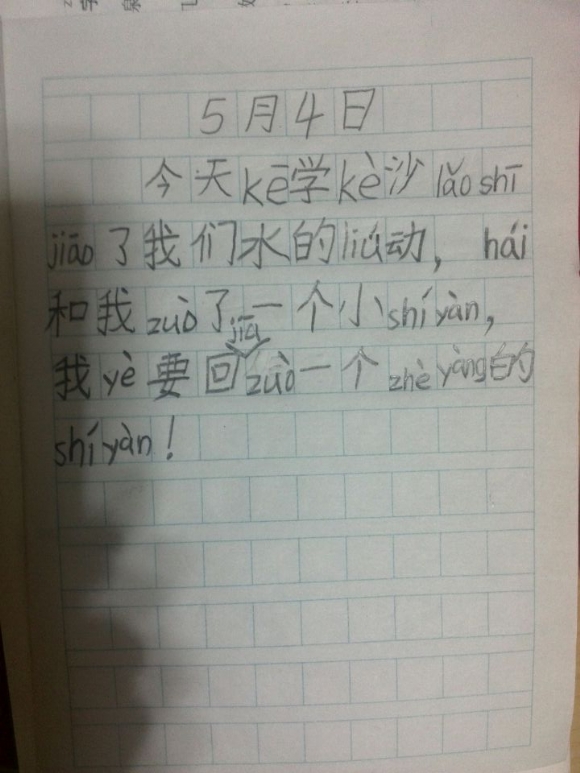 5月4日
今天kē学kè沙lǎo shī
jiāo了我们水的liú动，hái
和我zuò了一个小shí yàn，
我yè要回jiāzuò一个zhè yàng的
shí yàn！